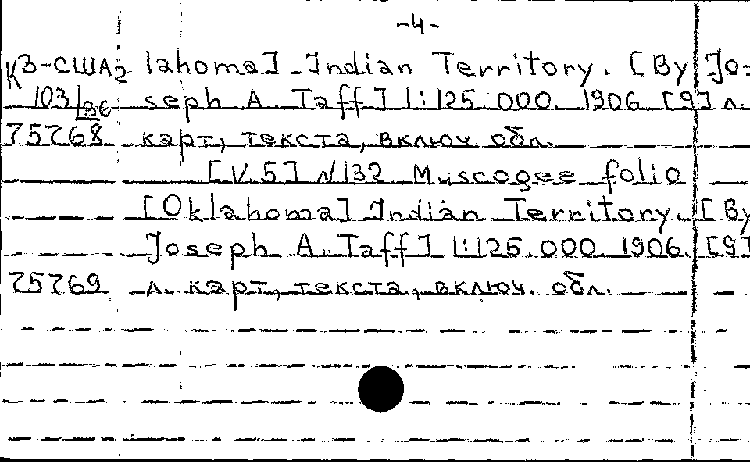 -4-
К3-США2 lahoma] Indian Territory. [By Jo-
103/86 seph A. Taff] 1:125.000. 1906. [9] л.
75768 карт, текста, включ. обл.
[V.5] N132 Muscogee folio
[Oklahoma] Indian Territory. [By
Joseph A. Taff] 1:125.000. 1906. [9]
75769 л. карт, текста, включ. обл.